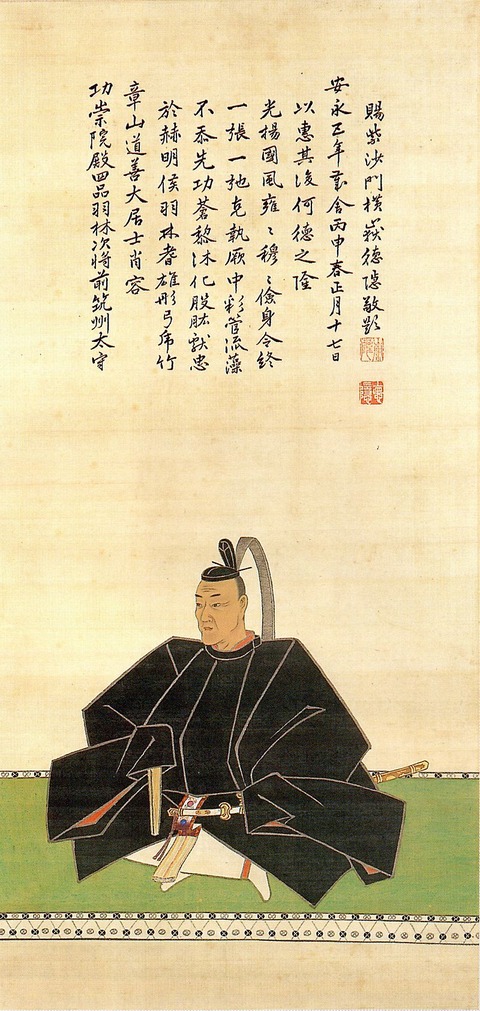 功崇院殿四品羽林次将前筑州太守
章山道善大居士肖容
於赫明侯羽林耆雄彤弓虎竹
不忝先功蒼黎沐化股肱獻忠
一張一弛克執厥中彩管流藻
光揚國風雍〻穆〻儉身令終
以惠其後何德之隆
安永五年歳舎丙申春正月十七日
賜紫沙門横嶽德隠敬題